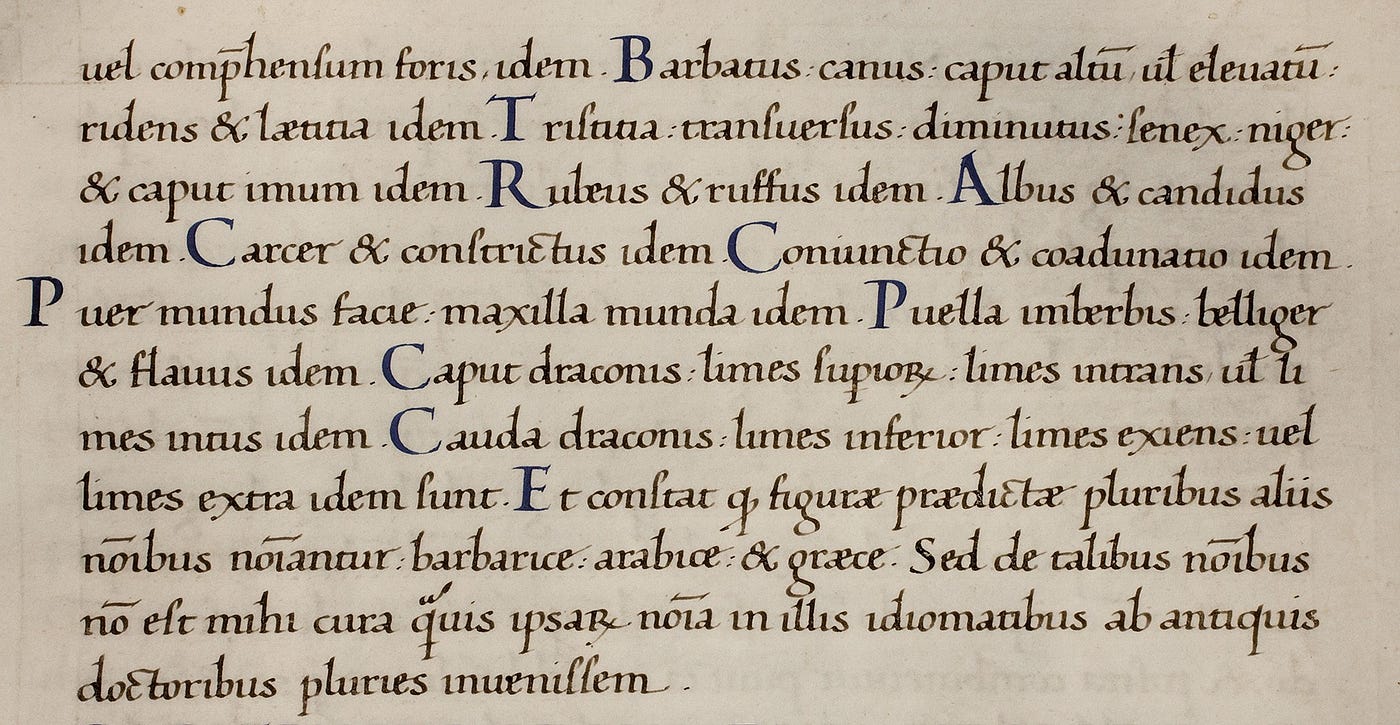 uel comp̄henſum foris, idem . Barbatus : canus : caput altū, uƚ eleuatū :
ridens & lætitia idem . Triſtitia : tranſuerſus : diminutus : ſenex : niger :
& caput imum idem . Rubeus & ruffus idem . Albus & candidus
idem . Carcer & conſtrictus idem . Coniunctio & coadunatio idem .
Puer mundus facie : maxilla munda idem . Puella imberbis : belliger
& flauus idem . Caput draconis : limes ſupioꝝ : limes intrans, uƚ li
mes intus idem . Cauda draconis : limes inferior : limes exiens : uel
limes extra idem ſunt . Et conſtat ꝙ figuræ prædictæ pluribus aliis
nōibus nōiantur : barbarice : arabice : & græce . Sed de talibus nōibus
nō eſt mihi cura qᵃuis ipsaꝝ nōia in illis idiomatibus ab antiquis
doctoribus pluries inueniſſem .